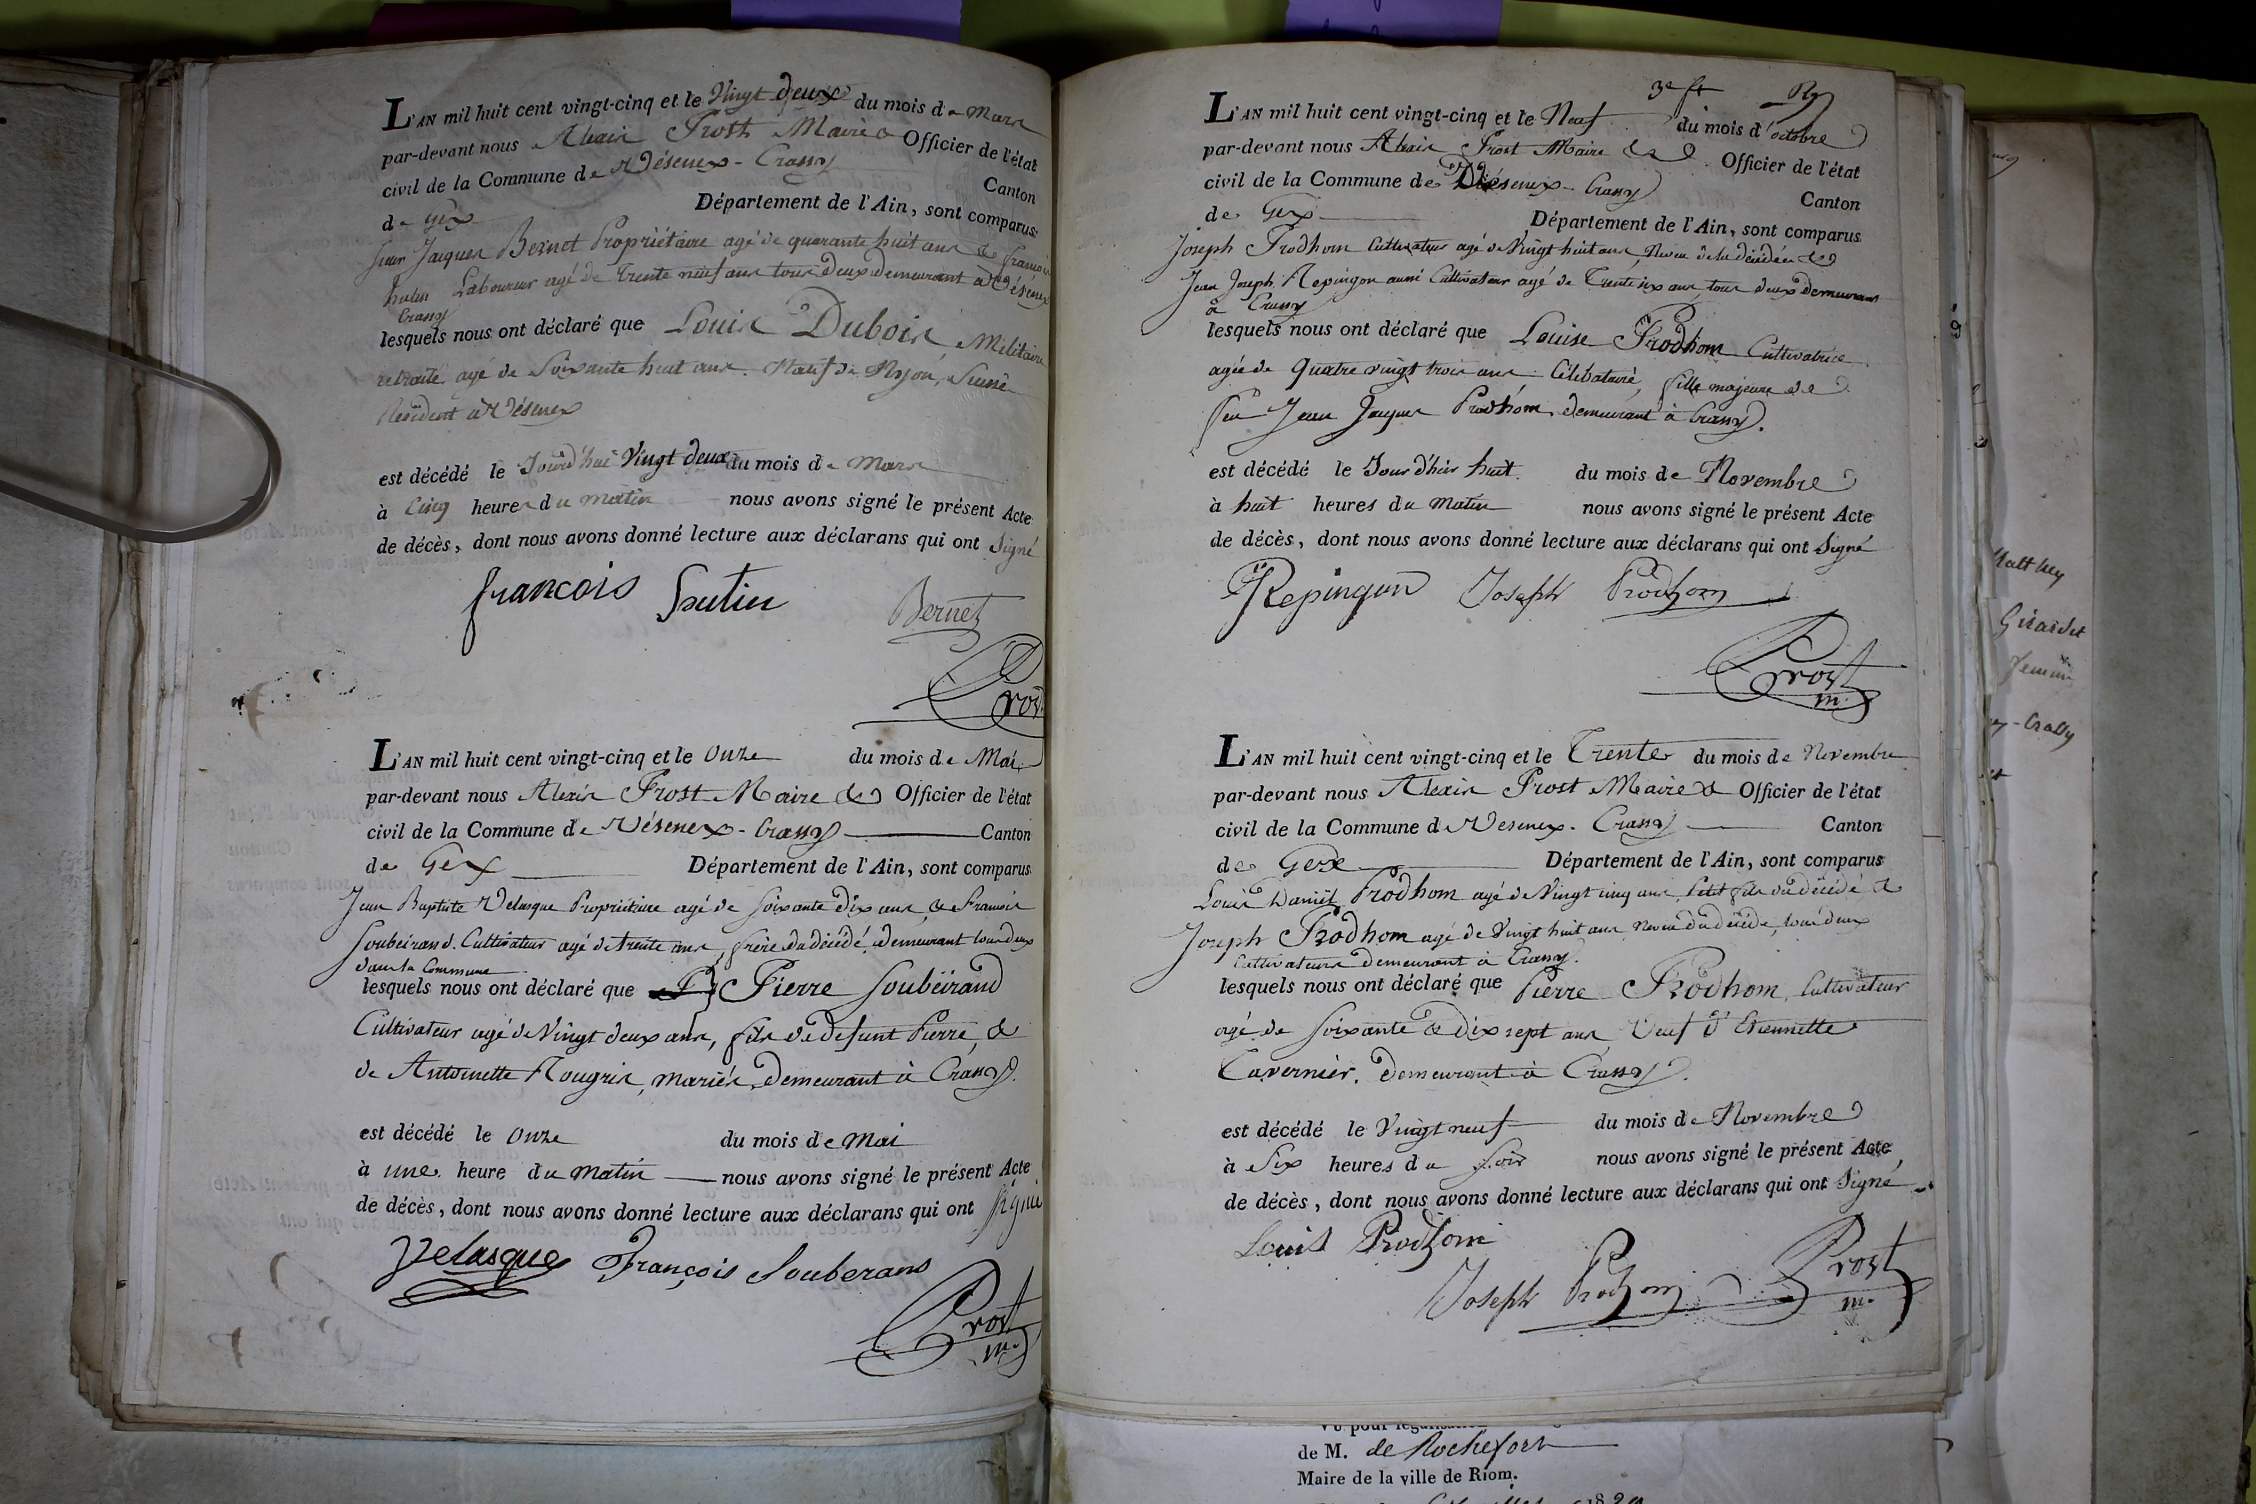 L'AN mil huit cent vingt-cinq et le Vingt deux du mois de Mars
par-devant nous Alexis Prost Maire & Officier de l'état
civil de la Commune de Vésenex-Crassy Canton
de Gex Département de l'Ain, sont comparus
Jean Jaques Bernet Propriétaire agé de quarante huit ans & françois
hutin Laboureur agé de trente neuf ans tous deux demeurant à Vésenex
Crassy
lesquels nous ont déclaré que Louis Dubois Militaire
retraité agé de Soixante huit ans Natif de Nyon, Suisse
Résident à Vésenex
est décédé le Jourd'hui Vingt deux du mois de Mars
à Cinq heures du matin nous avons signé le présent Acte
de décès, dont nous avons donné lecture aux déclarans qui ont Signé
françois hutin Bernet
Prost
L'AN mil huit cent vingt-cinq et le Onze du mois de Mai
par-devant nous Alexis Prost Maire & Officier de l'état
civil de la Commune de Vésenex-Crassy Canton
de Gex Département de l'Ain, sont comparus
Jean Baptiste Velasque Propriétaire agé de soixante dix ans, & François
Soubeirand. Cultivateur agé de trente ans, frère du décédé, demeurant tous deux
dans la Commune
lesquels nous ont déclaré que Pierre Soubeirand
Cultivateur agé de Vingt deux ans, fils de defunt Pierre, &
de Antoinette Nougris, mariés, demeurant à Crassy.
est décédé le Onze du mois de Mai
à une heure du Matin nous avons signé le présent Acte
de décès, dont nous avons donné lecture aux déclarans qui ont signé
Velasque François Souberand
Prost
m.
L'AN mil huit cent vingt-cinq et le Neuf du mois d'octobre
par-devant nous Alexis Prost Maire & Officier de l'état
civil de la Commune de Vésenex-Crassy Canton
de Gex Département de l'Ain, sont comparus
Joseph Prodhom Cultivateur agé de Vingt huit ans, Neveu de la décédée &
Jean Joseph Repingon aussi Cultivateur agé de Trente six ans, tous deux demeurans
à Crassy
lesquels nous ont déclaré que Louise Prodhom Cultivatrice
agée de Quatre vingt trois ans Célibataire, fille majeure de
feu Jean Jaques Prodhom demeurant à Crassy.
est décédé le Jour d'hier huit du mois de Novembre
à huit heures du Matin nous avons signé le présent Acte
de décès, dont nous avons donné lecture aux déclarans qui ont Signé
JRepingon Joseph Prodhom
Prost
m.
L'AN mil huit cent vingt-cinq et le Trente du mois de Novembre
par-devant nous Alexis Prost Maire & Officier de l'état
civil de la Commune de Vesenex-Crassy Canton
de Gex Département de l'Ain, sont comparus
Louis Daniel Prodhom agé de Vingt cinq ans, Petit fils du décédé &
Joseph Prodhom agé de Vingt huit ans Neveu du décédé, tous deux
Cultivateurs demeurant à Crassy.
lesquels nous ont déclaré que Pierre Prodhom, Cultivateur
agé de soixante & dix sept ans Veuf d'Etiennette
Tavernier, demeurant à Crassy.
est décédé le Vingt neuf du mois de Novembre
à Six heures du soir nous avons signé le présent Acte
de décès, dont nous avons donné lecture aux déclarans qui ont Signé
Louis Prodhom
Joseph Prodhom Prost
m.
Girardet
de M. de Rochefort
Maire de la ville de Riom.